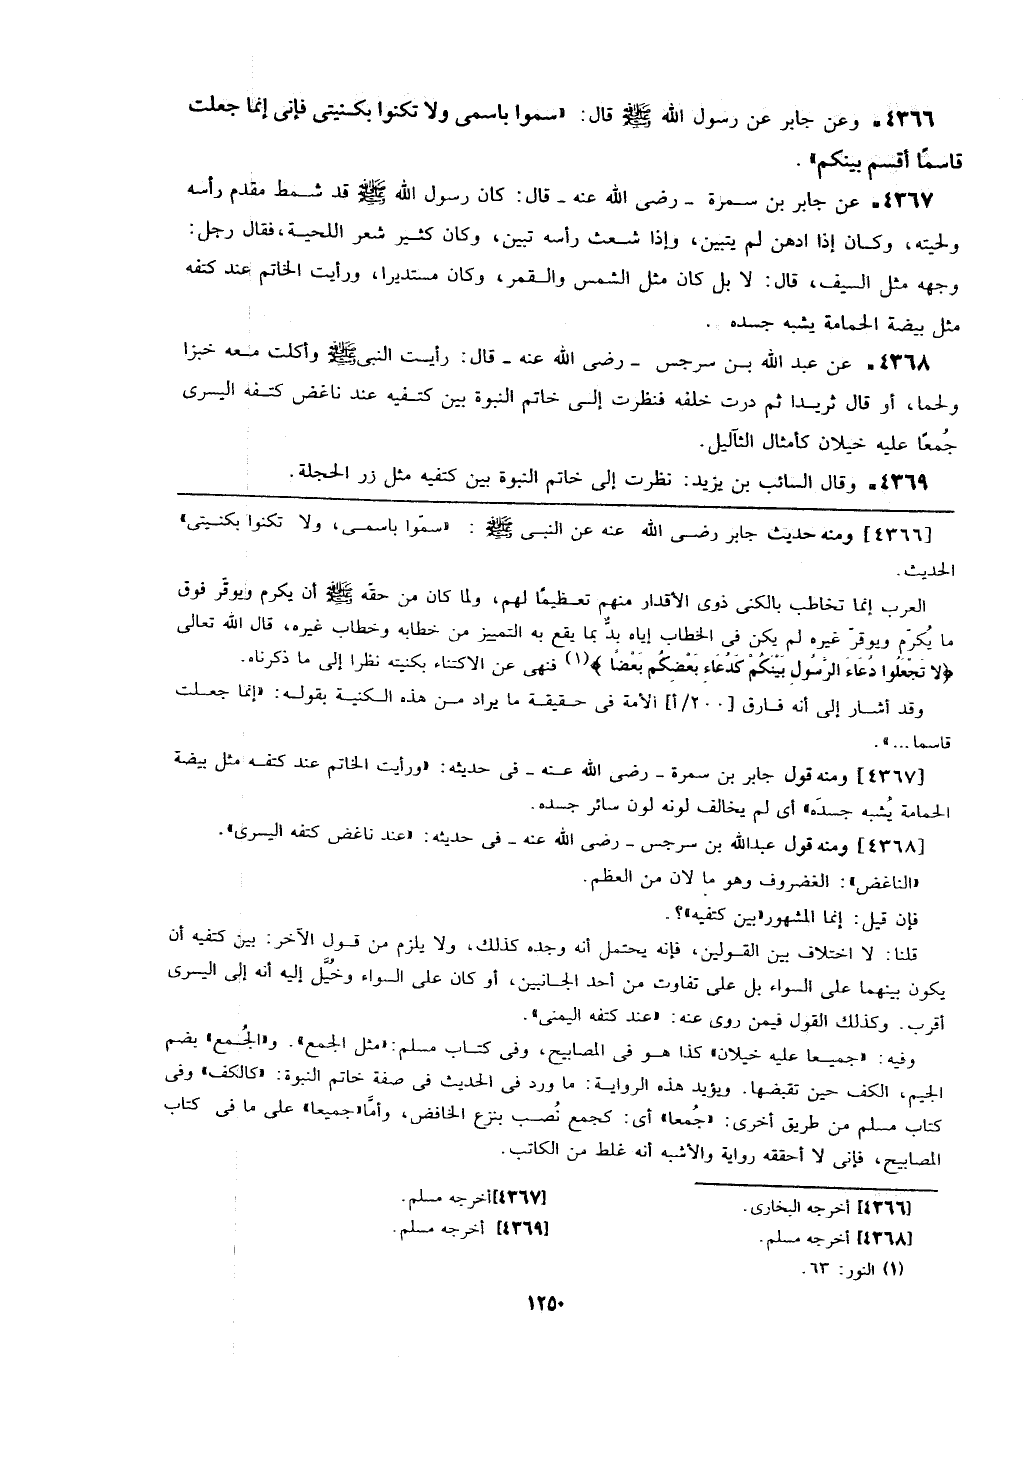 ٤٣٦٦ـ وعن جابر عن رسول الله ﷺ قال: «سموا باسمى ولا تكنوا بكنيتى فإنى إنما جعلت
قاسمًا أقسم بينكم» .
٤٣٦٧ـ عن جابر بن سمرة ـ رضى الله عنه ـ قال: كان رسول الله ﷺ قد شمط مقدم رأسه
ولحيته، وكان إذا ادهن لم يتبين، وإذا شعث رأسه تبين، وكان كثير شعر اللحية،فقال رجل:
وجهه مثل السيف، قال: لا بل كان مثل الشمس والقمر، وكان مستديرا، ورأيت الخاتم عند كتفه
مثل بيضة الحمامة يشبه جسده .
٤٣٦٨ـ عن عبد الله بن سرجس ـ رضى الله عنه ـ قال: رأيت النبى ﷺ وأكلت معه خبزا
ولحما، أو قال ثريدا ثم درت خلفه فنظرت إلى خاتم النبوة بين كتفيه عند ناغض كتفه اليسرى
جُمعًا عليه خيلان كأمثال الثآليل.
٤٣٦٩ـ وقال السائب بن يزيد: نظرت إلى خاتم النبوة بين كتفيه مثل زر الحجلة.
[٤٣٦٦] ومنه حديث جابر رضى الله عنه عن النبى ﷺ : «سمّوا باسمى، ولا تكنوا بكنيتى»
الحديث.
العرب إنما تخاطب بالكنى ذوى الأقدار منهم تعظيمًا لهم، ولما كان من حقّه ﷺ أن يكرم ويوقّر فوق
ما يُكرّم ويوقرّ غيره لم يكن فى الخطاب إياه بدٌّ بما يقع به التمييز من خطابه وخطاب غيره، قال الله تعالى
﴿لا تَجْعَلُوا دُعَاءَ الرَّسُولِ بَيْنَكُمْ كَدُعَاءِ بَعْضِكُم بَعْضًا﴾(١) فنهى عن الاكتناء بكنيته نظرا إلى ما ذكرناه.
وقد أشار إلى أنه فارق [٢٠٠/أ] الأمة فى حقيقة ما يراد من هذه الكنية بقوله: «إنما جعلت
قاسما...».
[٤٣٦٧] ومنه قول جابر بن سمرة ـ رضى الله عنه ـ فى حديثه: «ورأيت الخاتم عند كتفه مثل بيضة
الحمامة يُشبه جسدَه» أى لم يخالف لونه لون سائر جسده.
[٤٣٦٨] ومنه قول عبدالله بن سرجس ـ رضى الله عنه ـ فى حديثه: «عند ناغض كتفه اليسرى».
«الناغض»: الغضروف وهو ما لان من العظم.
فإن قيل: إنما المشهور«بين كتفيه»؟.
قلنا: لا اختلاف بين القولين، فإنه يحتمل أنه وجده كذلك، ولا يلزم من قول الآخر: بين كتفيه أن
يكون بينهما على السواء بل على تفاوت من أحد الجانبين، أو كان على السواء وخُيَّل إليه أنه إلى اليسرى
أقرب. وكذلك القول فيمن روى عنه: «عند كتفه اليمنى».
وفيه: «جميعا عليه خيلان» كذا هو فى المصابيح، وفى كتاب مسلم:«مثل الجمع». و«الجُمع» بضم
الجيم، الكف حين تقبضها. ويؤيد هذه الرواية: ما ورد فى الحديث فى صفة خاتم النبوة: «كالكف» وفى
كتاب مسلم من طريق أخرى: «جُمعا» أى: كجمع نُصب بنزع الخافض، وأمَّا«جميعا» على ما فى كتاب
المصابيح، فإنى لا أحققه رواية والأشبه أنه غلط من الكاتب.
[٤٣٦٦] أخرجه البخارى. [٤٣٦٧]أخرجه مسلم.
[٤٣٦٨] أخرجه مسلم. [٤٣٦٩] أخرجه مسلم.
(١) النور: ٦٣.
١٢٥٠